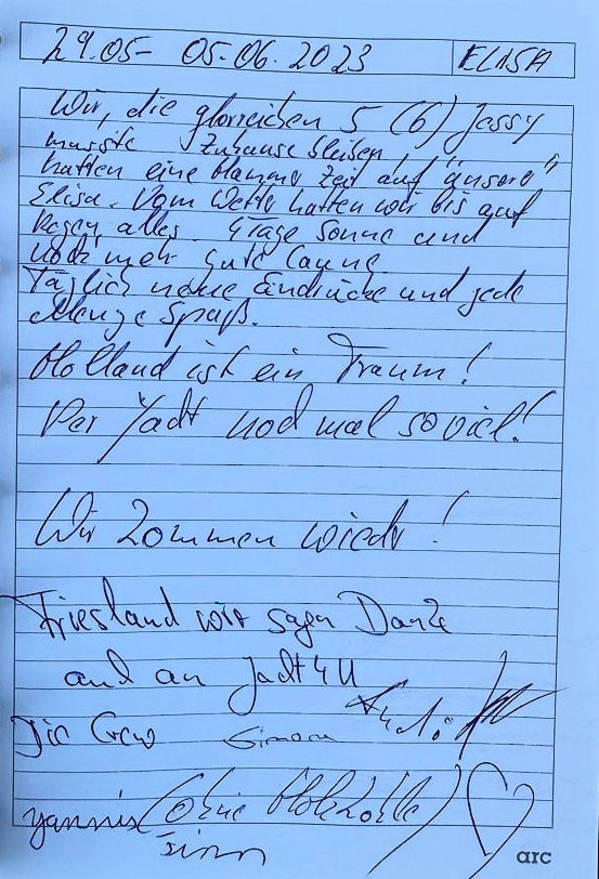 29.05 - 05.06.2023 ELISA
Wir, die glorreichen 5 (6) Jessy
musste Zuhause bleiben,
hatten eine Hammer Zeit auf "unsere"
Elisa. Vom Wetter hatten wir bis auf
Regen alles. 4 Tage Sonne und
noch mehr gute Laune.
Täglich neue Eindrücke und jede
Menge Spaß.
Holland ist ein Traum!
Per Yacht noch mal so viel!
Wir kommen wieder!
Friesland wir sagen Danke
auch an Jacht 4 U
Die Crew Simone
Yannis (ohne Holzkohle)
Finn
arc